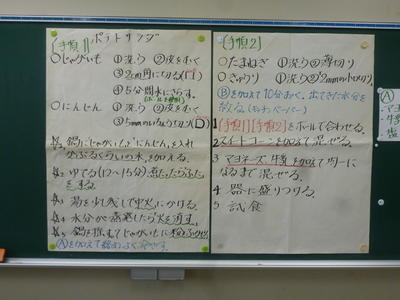 ポテトサラダ
[手順1]
○じゃがいも ①洗う ②皮をむく
③2cm角に切る(口)
④5分間水にさらす。
○にんじん ①洗う ②皮をむく
③5mmのいちょう切り(D)
鍋にじゃがいも、にんじんを入れ
かぶるくらいの水を加える。
2 ゆでる(12〜15分)煮たったらふたを
する。
3 湯を少し残して中火にかける。
4 水分が蒸発したら火を消す。
5 鍋を揺すってじゃがいもに粉をふかせる
Ⓐを加えて
[手順2]
○たまねぎ ①洗う ②薄切り
○きゅうり ①洗う ②2mmの小口切り
Ⓑを加えて10分おく。出てきた水分を
絞る(キッチンペーパー)
1 [手順1][手順2]をボールで合わせる。
2 スイートコーンを加えて混ぜる。
3 マヨネーズ、牛乳を加えて均一に
なるまで混ぜる。
4 器に盛りつける。
5 試食
Ⓐ
・牛乳
・塩